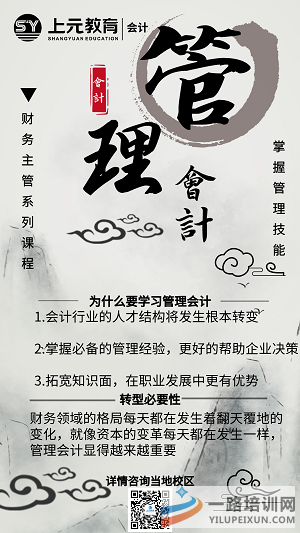 SY 上元教育 会计
SHANGYUAN EDUCATION
管理
會計
會計
财务主管系列课程
掌握管理技能
为什么要学习管理会计
1.会计行业的人才结构将发生根本转变
2.掌握必备的管理经验，更好的帮助企业决策
3.拓宽知识面，在职业发展中更有优势
转型必要性
财务领域的格局每天都在发生着翻天覆地的
变化，就像资本的变革每天都在发生一样，
管理会计显得越来越重要
详情咨询当地校区
一路培训网
YILUPEIXUN.COM